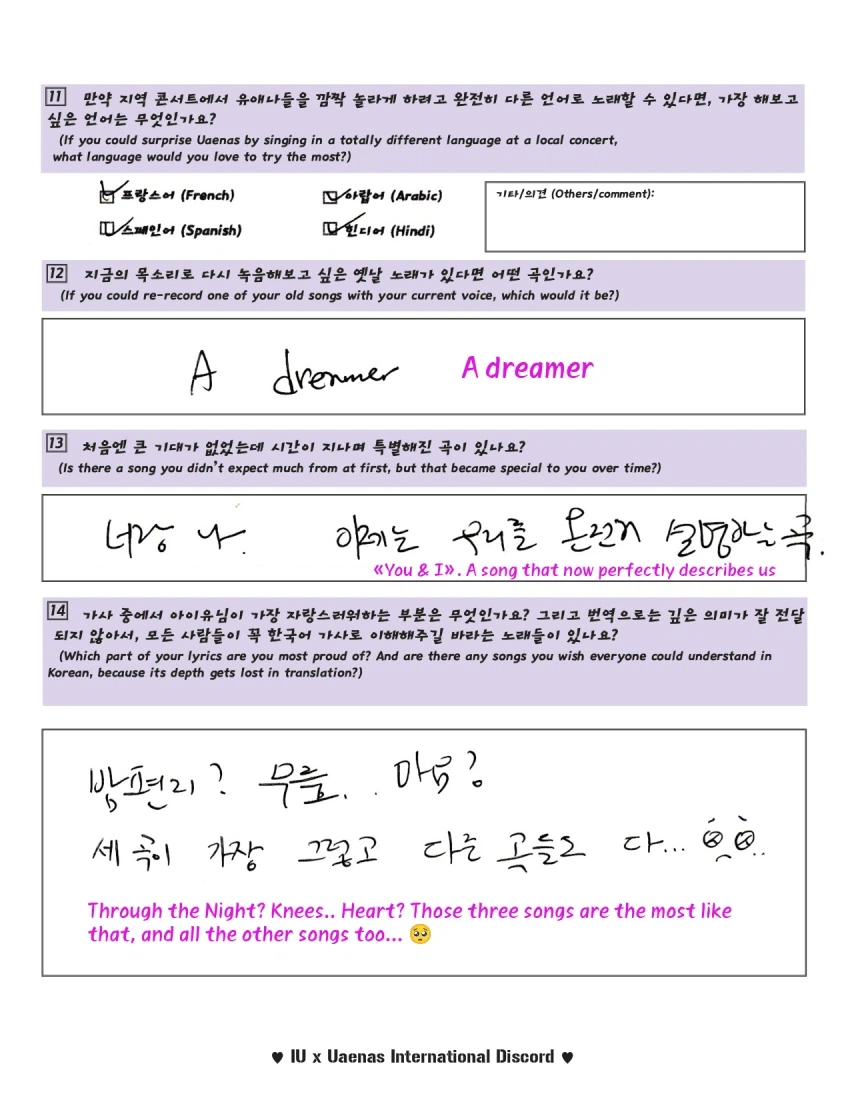 11 만약 지역 콘서트에서 유애나들을 깜짝 놀라게 하려고 완전히 다른 언어로 노래할 수 있다면, 가장 해보고
싶은 언어는 무엇인가요?
(If you could surprise Uaenas by singing in a totally different language at a local concert,
what language would you love to try the most?)
프랑스어 (French)
아랍어 (Arabic)
기타/의견 (Others/comment):
스페인어 (Spanish)
힌디어 (Hindi)
12 지금의 목소리로 다시 녹음해보고 싶은 옛날 노래가 있다면 어떤 곡인가요?
(If you could re-record one of your old songs with your current voice, which would it be?)
A dreamer A dreamer
13 처음엔 큰 기대가 없었는데 시간이 지나며 특별해진 곡이 있나요?
(Is there a song you didn't expect much from at first, but that became special to you over time?)
너랑 나. 이제는 우리를 온전히 설명하는 곡.
«You & I». A song that now perfectly describes us
14 가사 중에서 아이유님이 가장 자랑스러워하는 부분은 무엇인가요? 그리고 번역으로는 깊은 의미가 잘 전달
되지 않아서, 모든 사람들이 꼭 한국어 가사로 이해해주길 바라는 노래들이 있나요?
(Which part of your lyrics are you most proud of? And are there any songs you wish everyone could understand in
Korean, because its depth gets lost in translation?)
밤편지? 무릎.. 마음?
세 곡이 가장 그렇고 다른 곡들도 다...
Through the Night? Knees.. Heart? Those three songs are the most like
that, and all the other songs too... 🥺
♥ IU x Uaenas International Discord ♥